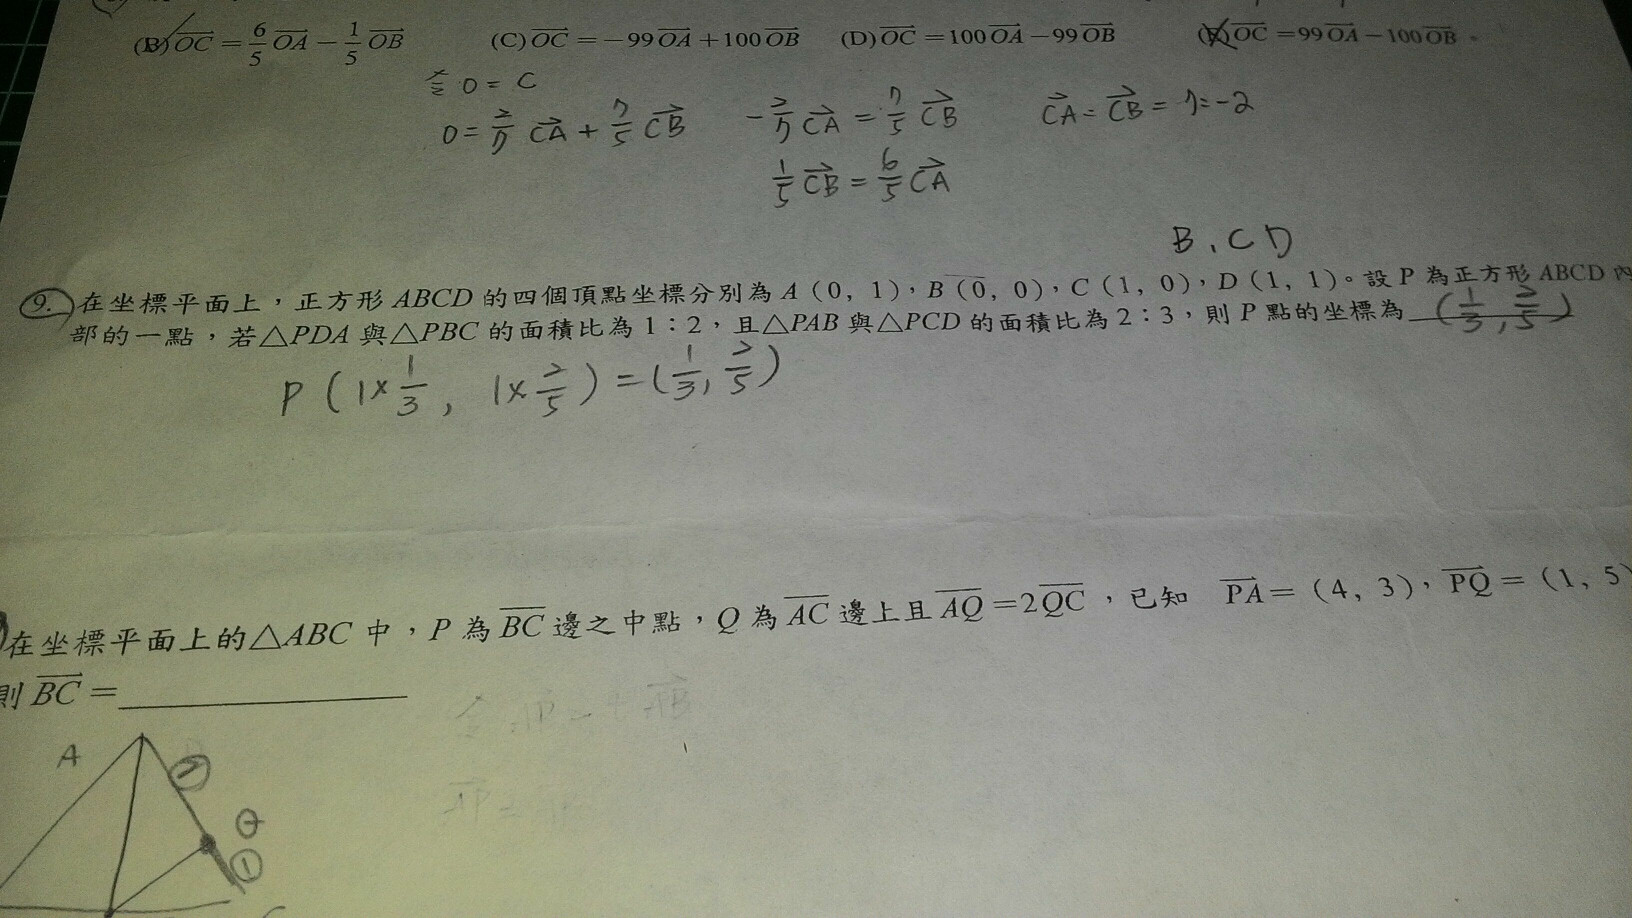 (B) OC = 6/5 OA − 1/5 OB (C) OC = −99 OA + 100 OB (D) OC = 100 OA − 99 OB (E) OC = 99 OA − 100 OB。
令 0 = C
0 = 2/7 CA + 7/5 CB − 2/7 CA = 7/5 CB CA = CB = 7 = -2
1/5 CB = 6/5 CA
B、C D
9. 在坐標平面上，正方形 ABCD 的四個頂點坐標分別為 A（0, 1），B（0, 0），C（1, 0），D（1, 1）。設 P 為正方形 ABCD 內
部的一點，若△PDA 與△PBC 的面積比為 1：2，且△PAB 與△PCD 的面積比為 2：3，則 P 點的坐標為 (1/3, 2/5)
P (1× 1/3, 1× 2/5) = (1/3, 2/5)
在坐標平面上的△ABC 中，P 為 BC 邊之中點，Q 為 AC 邊上且 AQ = 2QC，已知 PA =（4, 3），PQ =（1, 5）
則 BC =
A
②
Q
①